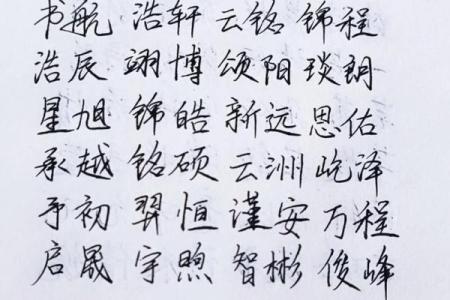 书航 浩轩 云铭 锦程
浩辰 翊博 颂阳 琰玥
星旭 锦皓 新远 思佑
承越 铭硕 云洲 屹泽
予初 羿恒 谨安 万程
启晟 宇煦 智彬 俊峰